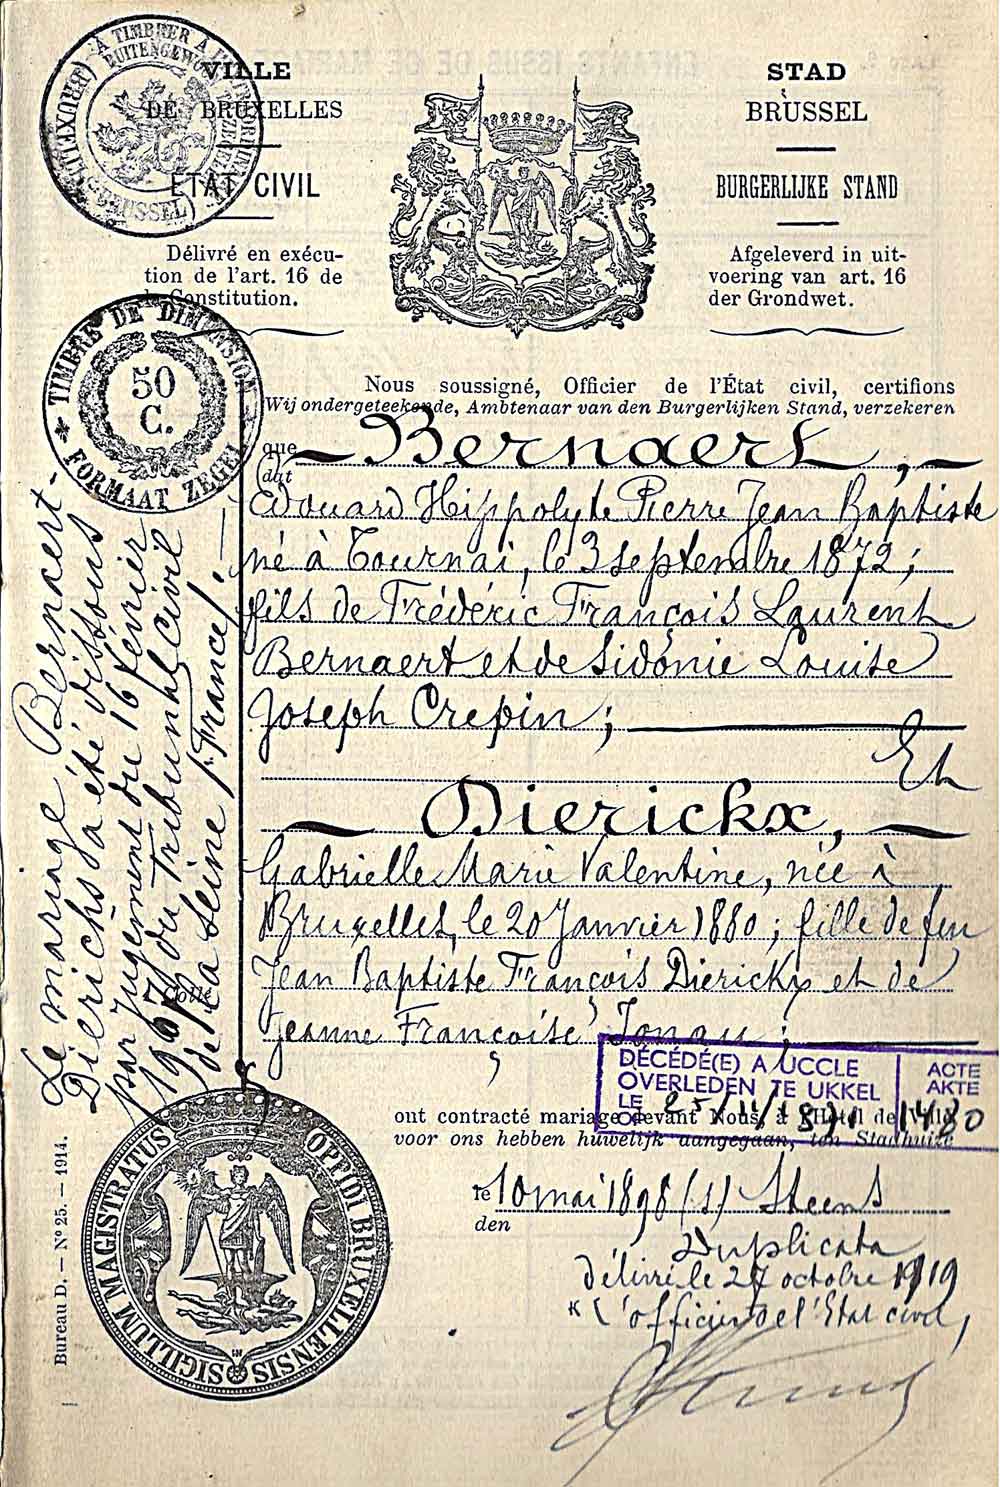 VILLE
DE BRUXELLES
ÉTAT CIVIL
Délivré en exécu-
tion de l'art. 16 de
la Constitution.
STAD
BRUSSEL
BURGERLIJKE STAND
Afgeleverd in uit-
voering van art. 16
der Grondwet.
TIMBRE DE DIMENSION
50
C.
FORMAAT ZEGEL
Nous soussigné, Officier de l'État civil, certifions
Wij ondergeteekende, Ambtenaar van den Burgerlijken Stand, verzekeren
que Bernaert,
dat
Edouard Hippolyte Pierre Jean Baptiste
né à Tournai, le 3 septembre 1872;
fils de Frédéric François Laurent
Bernaert et de Sidonie Louise
Joseph Crepin;
Et
Dierickx,
Gabrielle Marie Valentine, née à
Bruxelles, le 20 Janvier 1880; fille de feu
Jean Baptiste François Dierickx et de
Jeanne Françoise
DÉCÉDÉ(E) A UCCLE
OVERLEDEN TE UKKEL
LE
OP
ACTE
AKTE
1480
ont contracté mariage devant Nous, à l'Hôtel de Ville
voor ons hebben huwelijk aangegaan, ten Stadhuize
le 10 mai 1898 (s) Steens
den
Duplicata
délivré le 27 octobre 1919
L'officier de l'Etat civil,
Le mariage Bernaert-
Dierickx a été dissous
par jugement du 16 février
du Tribunal Civil
de la Seine (France).
SIGILLUM MAGISTRATUS OPPIDI BRUXELLENSIS
Bureau D. — N° 25. — 1914.